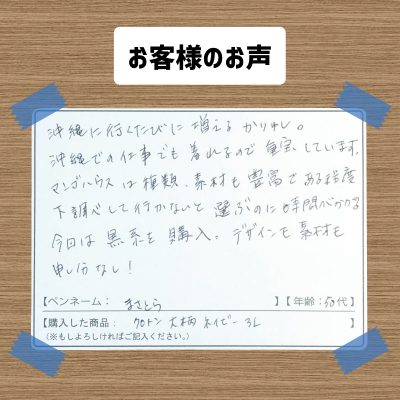 お客様のお声
沖縄に行くたびに増えるかりゆし。
沖縄での仕事でも着れるので重宝しています。
マンゴハウスは種類、素材も豊富である程度
下調べして行かないと選ぶのに時間がかかる
今回は黒系を購入。デザインも素材も
申し分なし!
【ペンネーム: まさとら 】【年齢:50代】
【購入した商品: クロトン大柄 ネイビー 3L 】
(※もしよろしければご記入ください。)